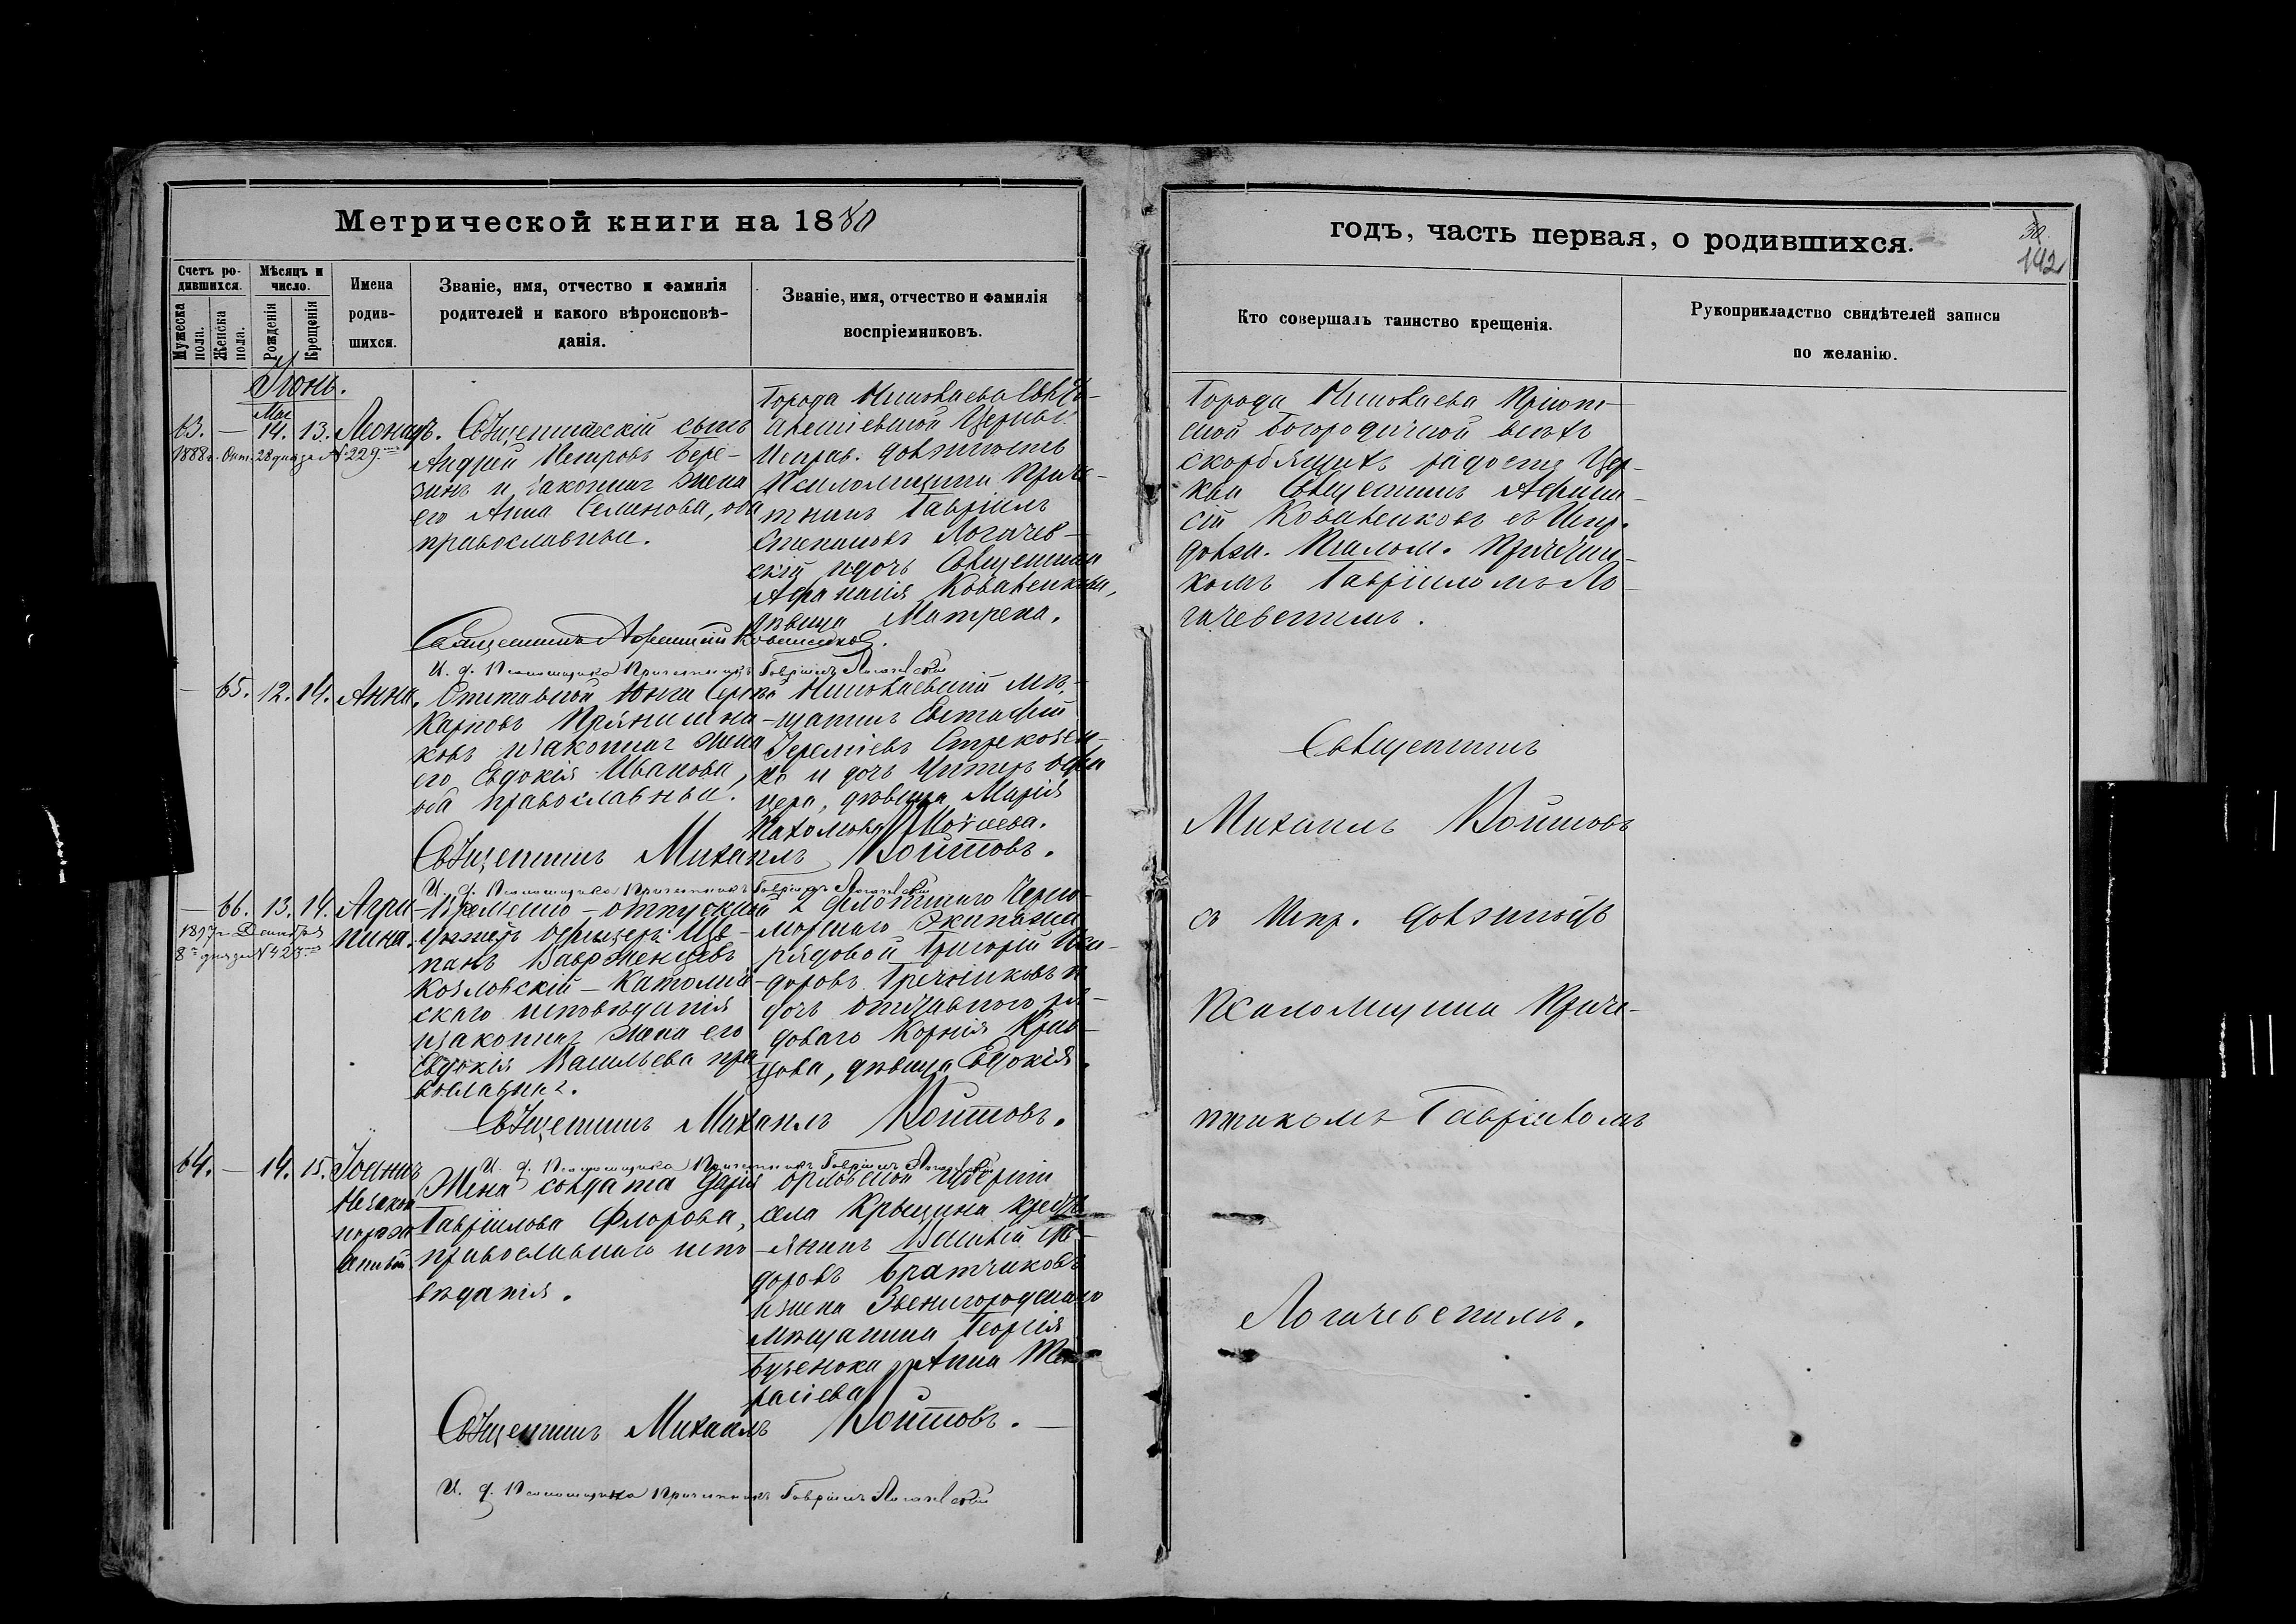 Метрической книги на 1880
годъ, часть первая, о родившихся.
30.
142
Счетъ родившихся.
Мужеска пола.
Женска пола.
Мѣсяцъ и число.
Рожденія
Крещенія
Имена
родив-
шихся.
Званіе, имя, отчество и фамилія
родителей и какого вѣроисповѣ-
данія.
Званіе, имя, отчество и фамилія
воспріемниковъ.
Кто совершалъ таинство крещенія.
Рукоприкладство свидѣтелей записи
по желанію.
Іюнь.
Мая
63. — 14. 13. Леонидъ.
1888г. Окт. 28 дня за № 229.
Священнический сынъ
Андрей Петровъ Бере-
зинъ и законная жена
его Анна Семенова, оба
православные.
Города Николаева
Церкви
Исправ. должность
Псаломщика Приче-
тникъ Гавріилъ
Степановъ Логачев-
скій и дочь Священника
Афанасія Коваленкова,
дѣвица Матрена.
Города Николаева
Богородичной всѣхъ
скорбящихъ радости Цер-
кви Священникъ Афана-
сій Коваленковъ съ Испр.
должн. Псалом. Причетни-
комъ Гавріиломъ Ло-
гачевскимъ.
Священникъ Афанасій Коваленковъ.
И. д. Псаломщика Причетникъ Гавріилъ Логачевскій
— 65. 12. 14. Анна.
Отставной Юнга Сергѣй
Карповъ Прянишни-
ковъ и законная жена
его Евдокія Иванова,
оба православные.
Николаевскій мѣ-
щанинъ Евстафій
Иереміевъ Стрековен-
ко и дочь Унтеръ офи-
цера, дѣвица Марія
Пахомова Моісеева.
Священникъ Михаилъ Войтовъ.
И. д. Псаломщика Причетникъ Гавріилъ Логачевскій
Священникъ
Михаилъ Войтовъ
съ Испр. должность
Псаломщика Приче-
тникомъ Гавріиломъ
Логачевскимъ.
— 66. 13. 14. Агри-
пина.
1897г. Декабря
8го дня за № 423
Временно-отпускной
унтеръ офицеръ Ще-
панъ Вавроженцевъ
Козловскій — Католиче-
скаго исповѣданія
и законная жена его
Евдокія Васильева пра-
вославная.
2 флотскаго Черно-
морскаго Экипажа
рядовой Григорій Иси-
доровъ Гречниковъ и
дочь отставного ря-
доваго Корнія Крив-
цова, дѣвица Евдокія.
Священникъ Михаилъ Войтовъ.
И. д. Псаломщика Причетникъ Гавріилъ Логачевскій
64. — 14. 15. Іоаннъ
Незакон
норож
Жена солдата Дарія
Гавріилова Флорова,
православнаго испо-
вѣданія.
Орловской губерніи
села Крыцина кресть-
янинъ Василій Ѳе-
доровъ Братчиковъ
и жена Звенигородскаго
мѣщанина Георгія
Бузенока Анна
расіева
Священникъ Михаилъ Войтовъ. —
И. д. Псаломщика Причетникъ Гавріилъ Логачевскій